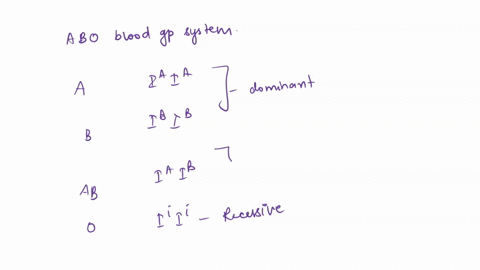 ABO blood gp system.
A I^A I^A
dominant
B I^B I^B
AB I^A I^B
O I^i I^i – Recessive